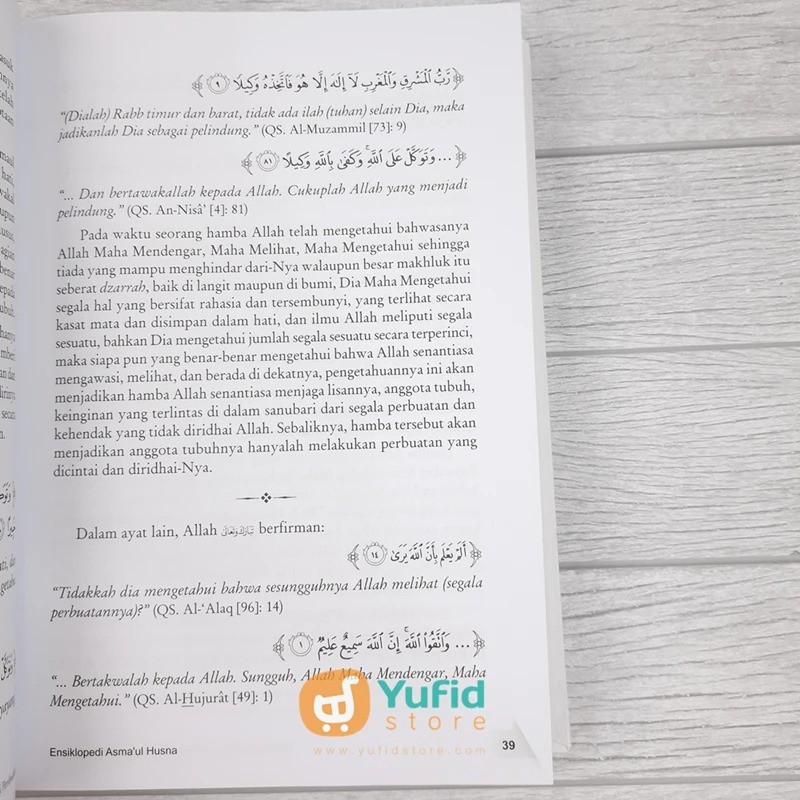 ﴿ رَّبُّ ٱلْمَشْرِقِ وَٱلْمَغْرِبِ لَآ إِلَٰهَ إِلَّا هُوَ فَٱتَّخِذْهُ وَكِيلًا ٩ ﴾
“(Dialah) Rabb timur dan barat, tidak ada ilah (tuhan) selain Dia, maka
jadikanlah Dia sebagai pelindung.” (QS. Al-Muzammil [73]: 9)
﴿ ... وَتَوَكَّلْ عَلَى ٱللَّهِ ۚ وَكَفَىٰ بِٱللَّهِ وَكِيلًا ٨١ ﴾
“... Dan bertawakallah kepada Allah. Cukuplah Allah yang menjadi
pelindung.” (QS. An-Nisâ’ [4]: 81)
Pada waktu seorang hamba Allah telah mengetahui bahwasanya
Allah Maha Mendengar, Maha Melihat, Maha Mengetahui sehingga
tiada yang mampu menghindar dari-Nya walaupun besar makhluk itu
seberat dzarrah, baik di langit maupun di bumi, Dia Maha Mengetahui
segala hal yang bersifat rahasia dan tersembunyi, yang terlihat secara
kasat mata dan disimpan dalam hati, dan ilmu Allah meliputi segala
sesuatu, bahkan Dia mengetahui jumlah segala sesuatu secara terperinci,
maka siapa pun yang benar-benar mengetahui bahwa Allah senantiasa
mengawasi, melihat, dan berada di dekatnya, pengetahuannya ini akan
menjadikan hamba Allah senantiasa menjaga lisannya, anggota tubuh,
keinginan yang terlintas di dalam sanubari dari segala perbuatan dan
kehendak yang tidak diridhai Allah. Sebaliknya, hamba tersebut akan
menjadikan anggota tubuhnya hanyalah melakukan perbuatan yang
dicintai dan diridhai-Nya.
Dalam ayat lain, Allah تَبَارَكَ وَتَعَالَى berfirman:
﴿ أَلَمْ يَعْلَم بِأَنَّ ٱللَّهَ يَرَىٰ ١٤ ﴾
“Tidakkah dia mengetahui bahwa sesungguhnya Allah melihat (segala
perbuatannya)?” (QS. Al-‘Alaq [96]: 14)
﴿ ... وَٱتَّقُوا۟ ٱللَّهَ ۚ إِنَّ ٱللَّهَ سَمِيعٌ عَلِيمٌ ١ ﴾
“... Bertakwalah kepada Allah. Sungguh, Allah Maha Mendengar, Maha
Mengetahui.” (QS. Al-Hujurât [49]: 1)
Yufid
store
www.yufidstore.com
Ensiklopedi Asma'ul Husna
39